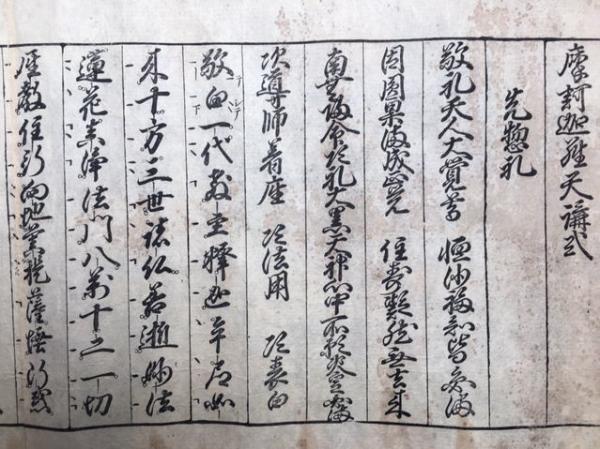 摩訶迦羅天講式
先惣礼
敬礼天人大覚尊 恒沙福智皆円満
因円果満成正覚 住寿凝然無去来
南無帰命頂礼大黒天神心中所願決定円満
次導師着座 次法用 次表白
敬白一代教主釈迦牟尼如
来十方三世諸仏善逝妙法
蓮花真浄法門八万十二一切
教住行向地薩埵